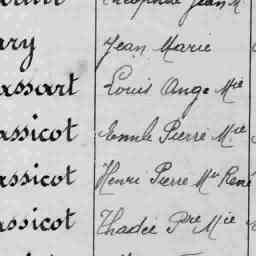 Jean M
ary Jean Marie
assart Louis Ange Mie
assicot Emile Pierre Mie
assicot Henri Pierre Mie René
assicot Thadée Pre Mie